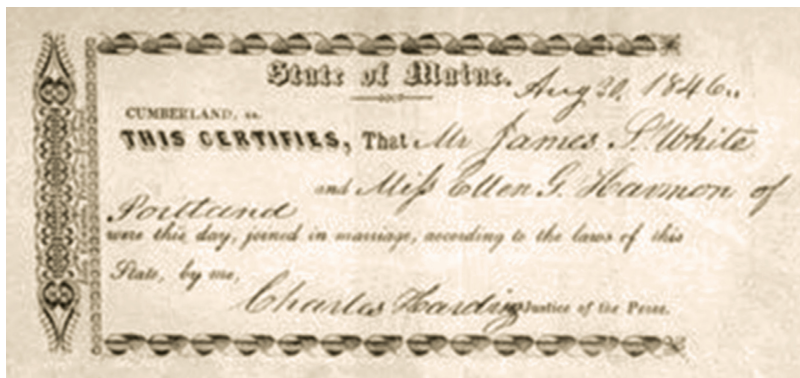 State of Maine. Aug 30, 1846.
CUMBERLAND, ss.
THIS CERTIFIES, That Mr James S. White
and Miss Ellen G. Harmon of
Portland
were this day, joined in marriage, according to the laws of this
State, by me,
Charles Harding Justice of the Peace.